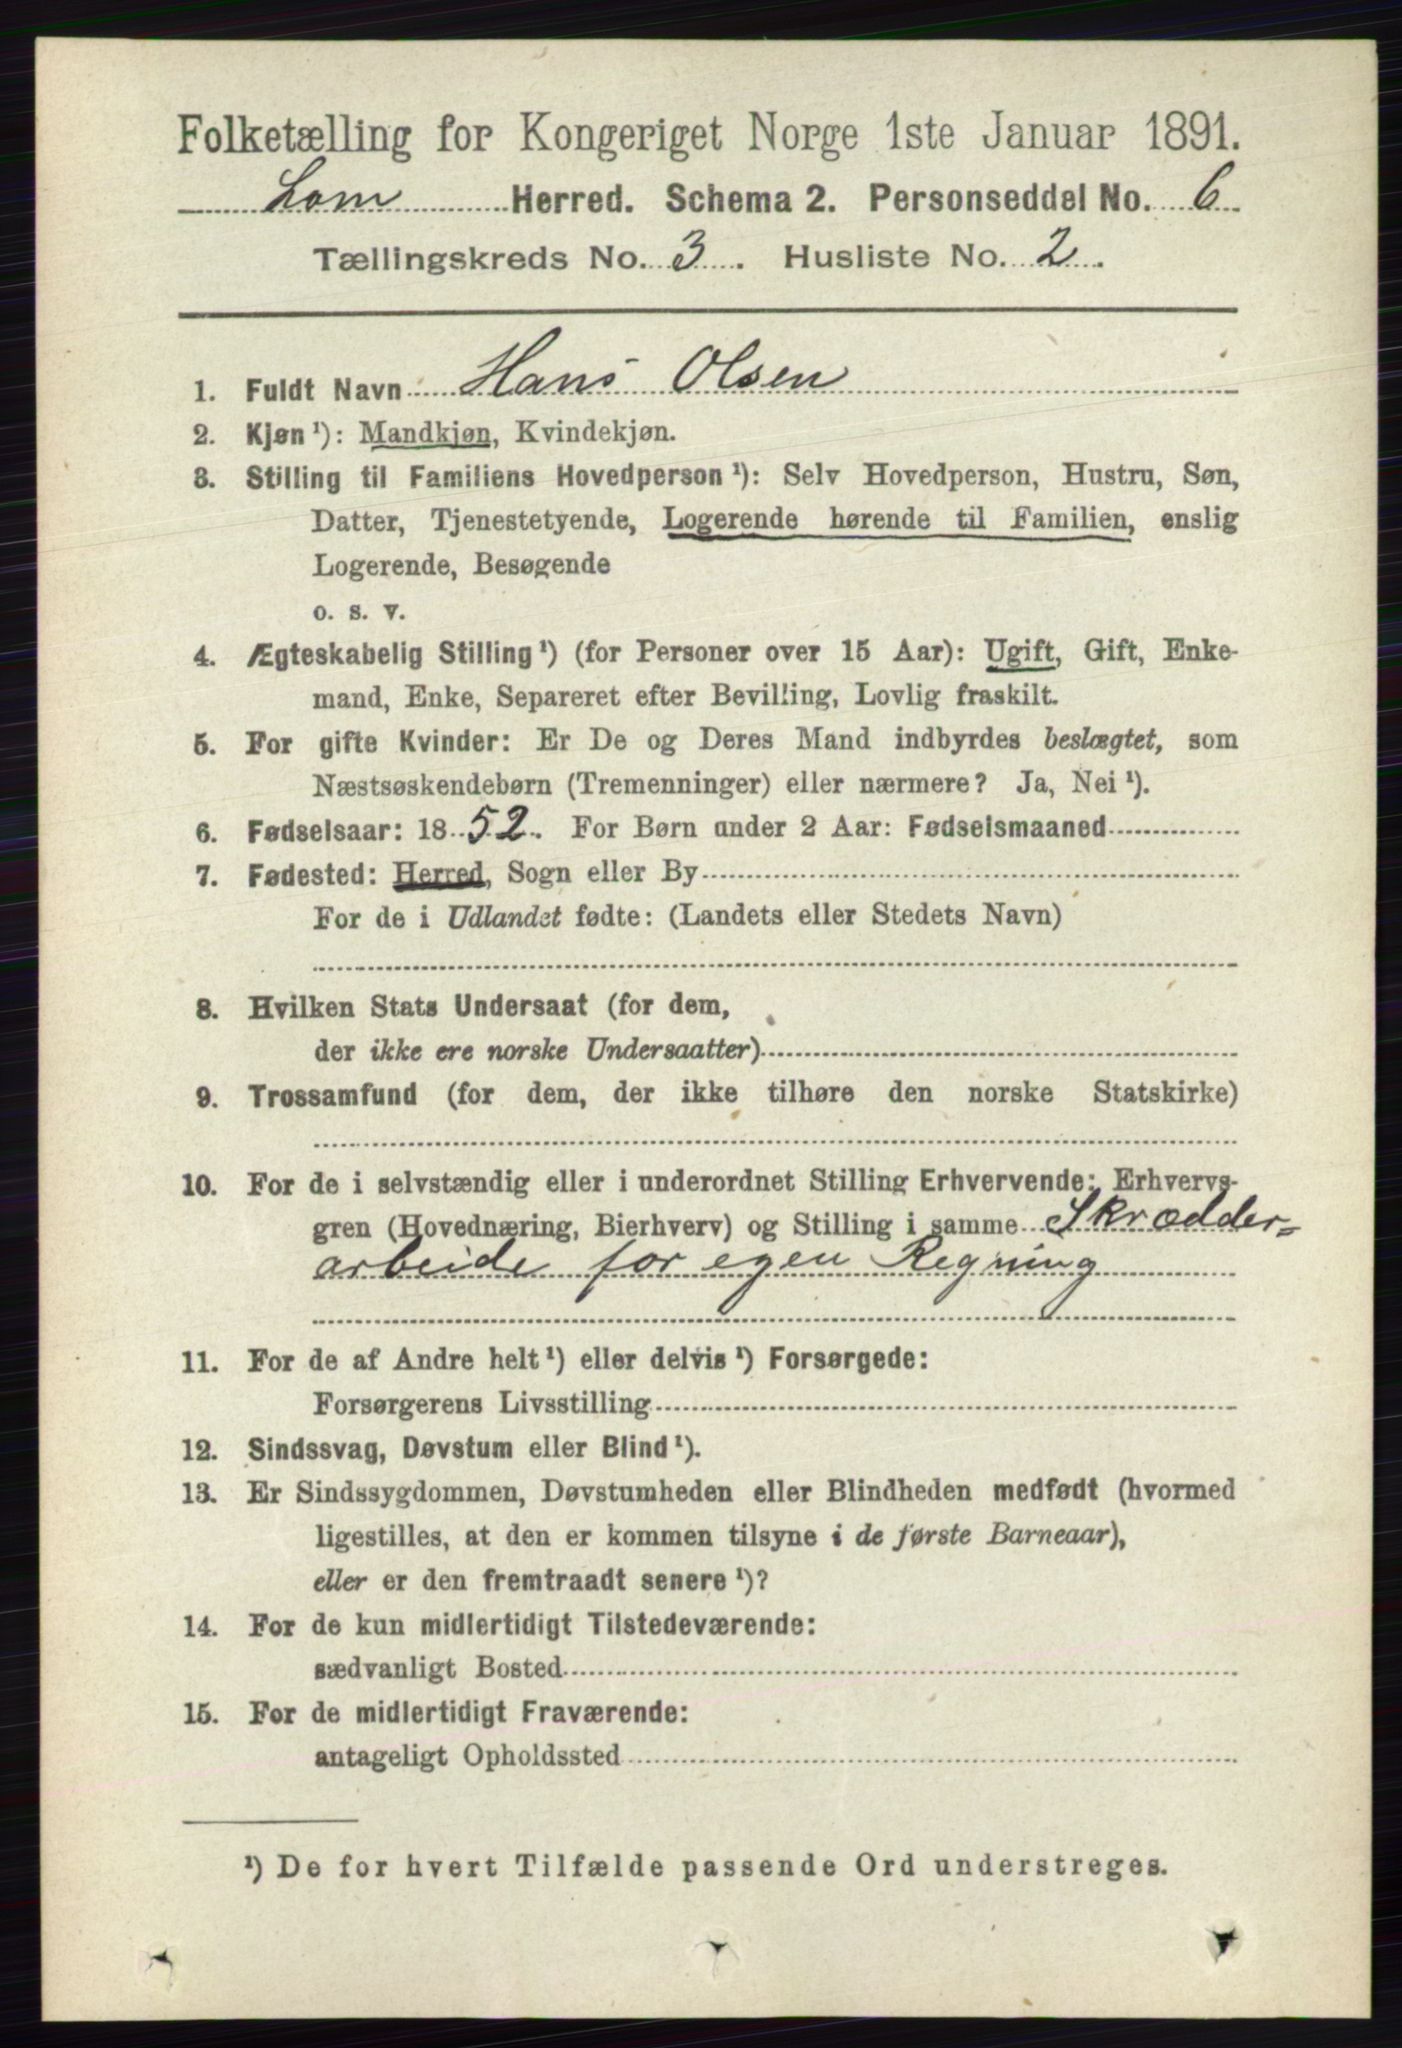 Folketælling for Kongeriget Norge 1ste Januar 1891.
Lom Herred. Schema 2. Personseddel No. 6
Tællingskreds No. 3. Husliste No. 2.
1. Fuldt Navn Hans Olsen
2. Kjøn¹): Mandkjøn, Kvindekjøn.
3. Stilling til Familiens Hovedperson¹): Selv Hovedperson, Hustru, Søn,
Datter, Tjenestetyende, Logerende hørende til Familien, enslig
Logerende, Besøgende
o. s. v.
4. Ægteskabelig Stilling¹) (for Personer over 15 Aar): Ugift, Gift, Enke-
mand, Enke, Separeret efter Bevilling, Lovlig fraskilt.
5. For gifte Kvinder: Er De og Deres Mand indbyrdes beslægtet, som
Næstsøskendebørn (Tremenninger) eller nærmere? Ja, Nei¹).
6. Fødselsaar: 1852. For Børn under 2 Aar: Fødselsmaaned
7. Fødested: Herred, Sogn eller By
For de i Udlandet fødte: (Landets eller Stedets Navn)
8. Hvilken Stats Undersaat (for dem,
der ikke ere norske Undersaatter)
9. Trossamfund (for dem, der ikke tilhøre den norske Statskirke)
10. For de i selvstændig eller i underordnet Stilling Erhvervende: Erhvervs-
gren (Hovednæring, Bierhverv) og Stilling i samme Skrædder-
arbeide for egen Regning
11. For de af Andre helt¹) eller delvis¹) Forsørgede:
Forsørgerens Livsstilling
12. Sindssvag, Døvstum eller Blind¹).
13. Er Sindssygdommen, Døvstumheden eller Blindheden medfødt (hvormed
ligestilles, at den er kommen tilsyne i de første Barneaar),
eller er den fremtraadt senere¹)?
14. For de kun midlertidigt Tilstedeværende:
sædvanligt Bosted
15. For de midlertidigt Fraværende:
antageligt Opholdssted
¹) De for hvert Tilfælde passende Ord understreges.